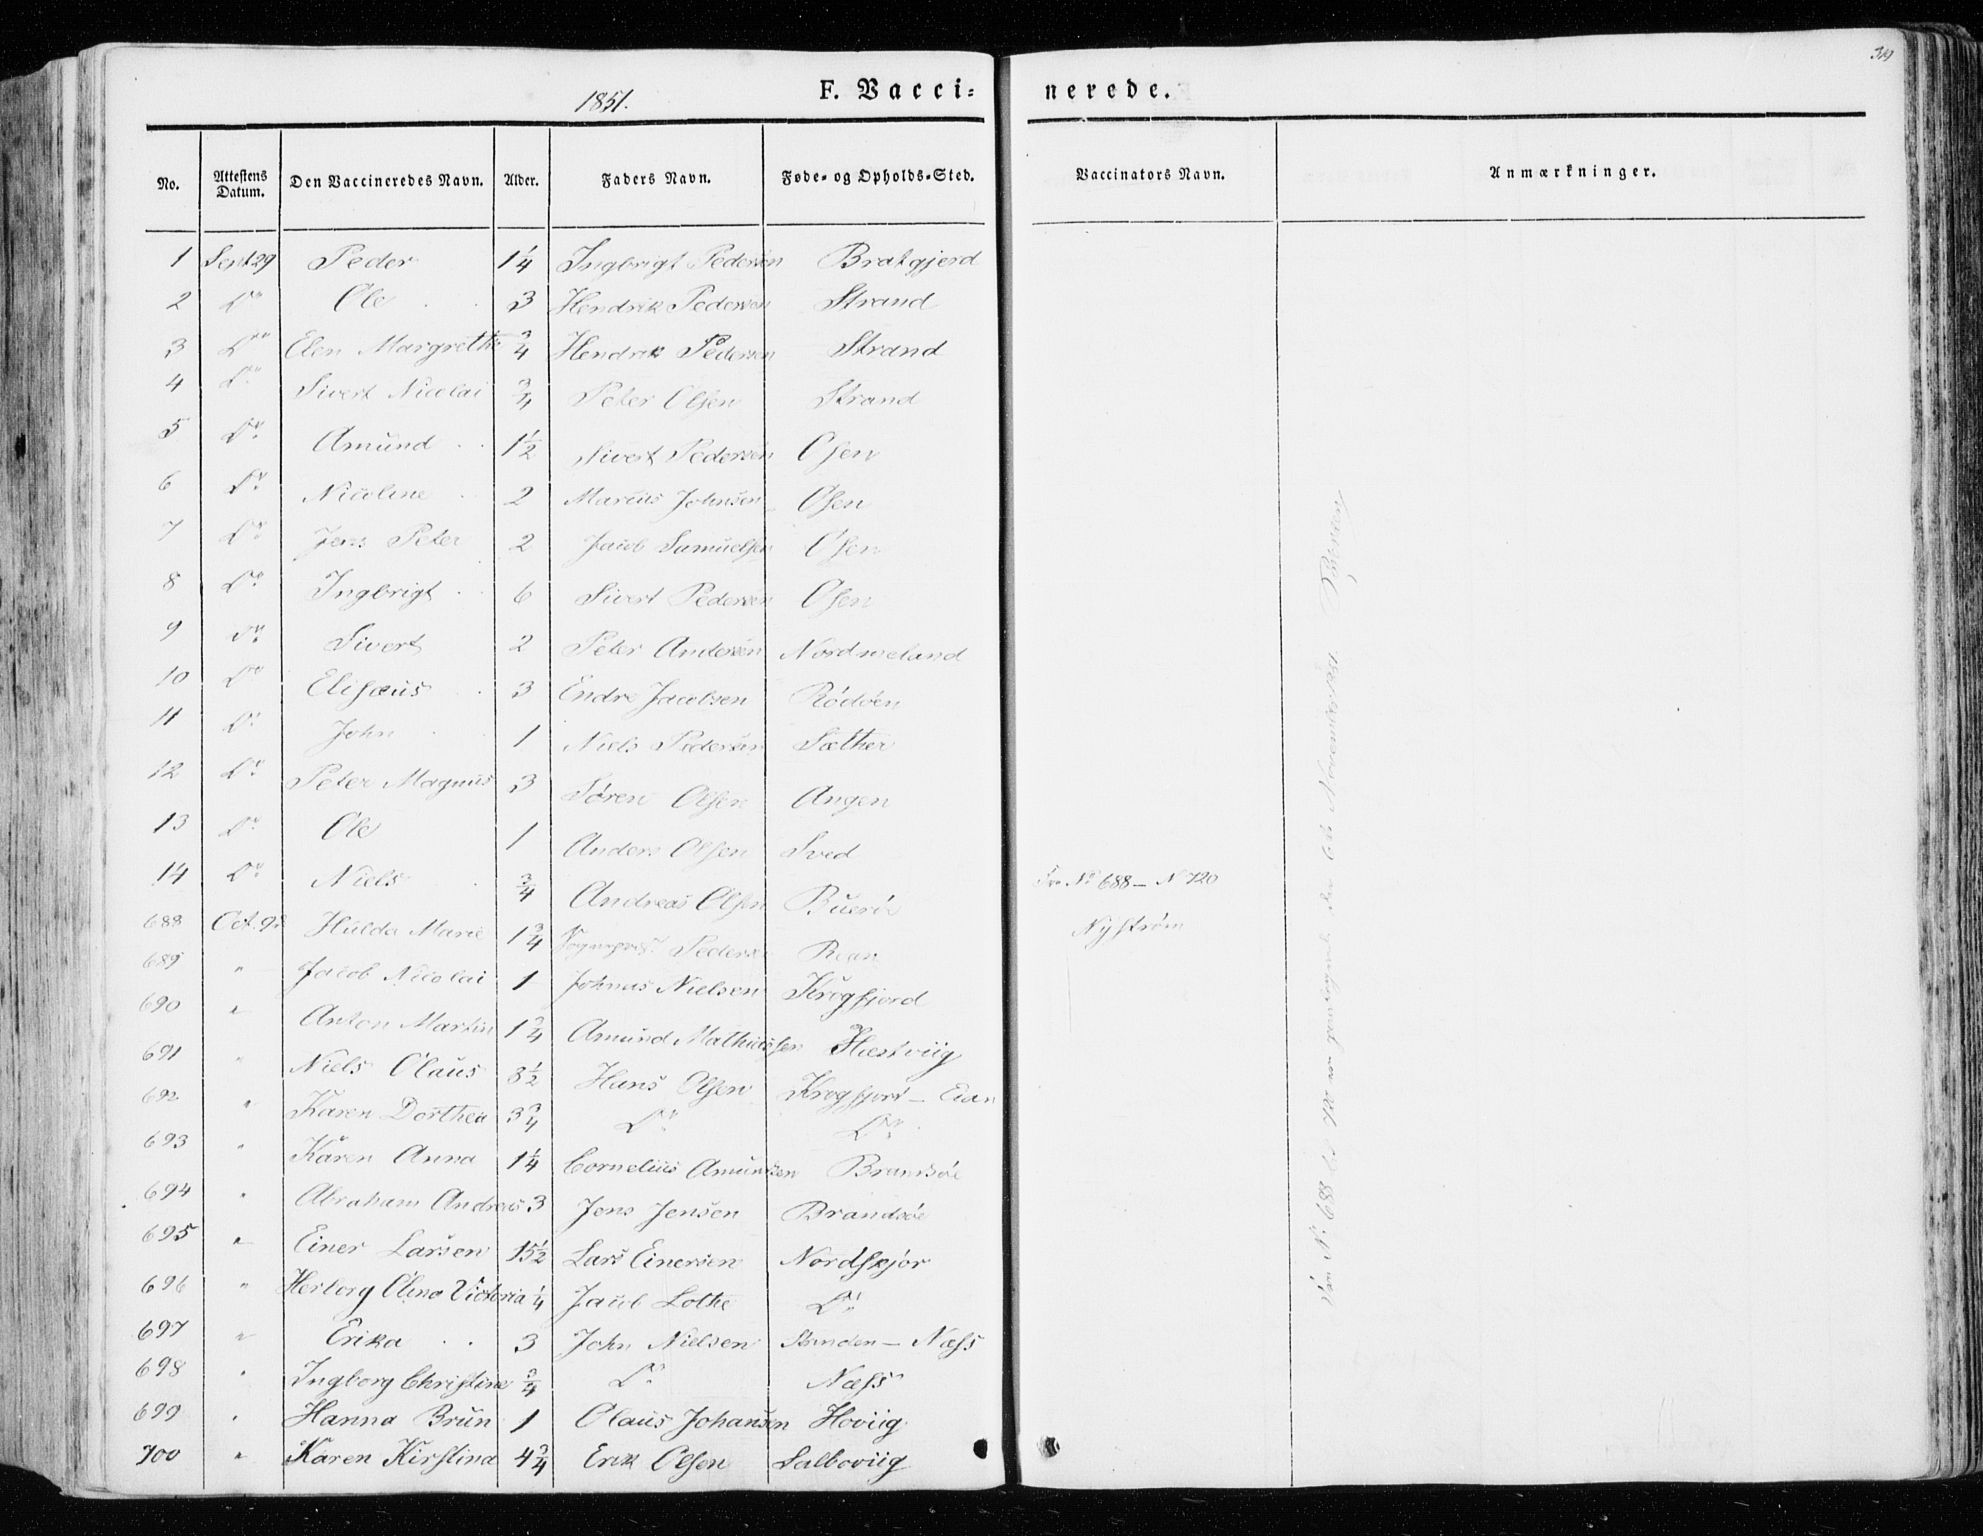 319
1851.
F. Vacci= nerede.
No. Attestens Datum. Den Vaccineredes Navn. Alder. Faders Navn. Føde- og Opholds-Sted. Vaccinators Navn. Anmærkninger.
1 Sept 29 Peder 1 1/4 Ingbrigt Pedersen Bratgjerd
2 Do Ole 3 Hendrik Pedersen Strand
3 Do Elen Margrethe 3/4 Hendrik Pedersen Strand
4 Do Sivert Nicolai 3/4 Peter Olsen Strand
5 Do Amund 1 1/2 Sivert Pedersen Osen
6 Do Nicoline 2 Marcus Johnsen Osen
7 Do Jens Peter 2 Jacob Samuelsen Osen
8 Do Ingbrigt 6 Sivert Pedersen Osen
9 Do Sivert 2 Peter Andersen Nordmeland
10 Do Elisæus 3 Endre Jacobsen Rødøen
11 Do John 1 Niels Pedersen Sæther
12 Do Peter Magnus 3 Søren Olsen Angen
13 Do Ole 1 Anders Olsen Sved
14 Do Niels 3/4 Andreas Olsen Buerøe
Fra No 688 - N 720
688 Oct. Hulda Marie 1 3/4 Pedersen Roan
Nystrøm
689 " Jacob Nicolai 1 Johnas Nielsen Krogfjord
690 " Anton Martin 1 3/4 Amund Mathiassen Hæstviig
691 " Niels Olaus 8 1/2 Hans Olsen Krogfjord - Eian
692 " Karen Dorthea 3 3/4 Do Do
693 " Karen Anna 1 1/4 Cornelius Amundsen Brandsøe
694 " Abraham Andreas 3 Jens Jensen Brandsøe
695 " Einer Larsen 15 1/2 Lars Einersen Nordskjør
696 " Herborg Olina Victoria 1/4 Jacob Lothe Do
697 " Erika 3 John Nielsen Næss
698 " Ingborg Christine 3/4 Do Næss
699 " Hanna Brun 1 Olaus Johansen Hoviig
700 " Karen Kirstina 4 3/4 Erik Olsen Salboviig
No 688 til 720 er den 6te November 1851.